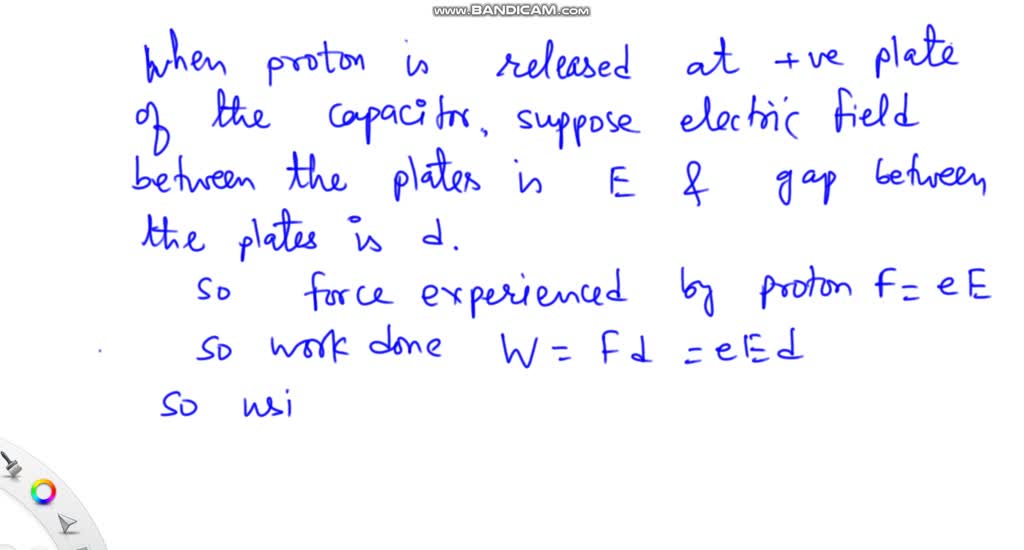 www.BANDICAM.com
When proton is released at +ve plate
of the capacitor, suppose electric field
between the plates is E & gap between
the plates is d.
so force experienced by proton F = eE
so work done W = Fd = eEd
so usi